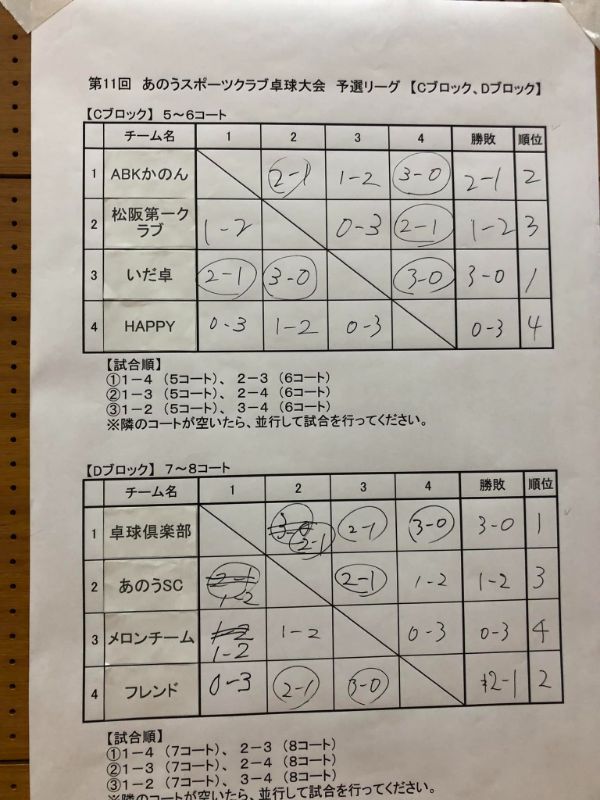 第11回 あのうスポーツクラブ卓球大会 予選リーグ 【Cブロック、Dブロック】
【Cブロック】 5～6コート
チーム名 1 2 3 4 勝敗 順位
1 ABKかのん 2-1 1-2 3-0 2-1 2
2 松阪第一クラブ 1-2 0-3 2-1 1-2 3
3 いだ卓 2-1 3-0 3-0 3-0 1
4 HAPPY 0-3 1-2 0-3 0-3 4
【試合順】
①1－4 (5コート)、 2－3 (6コート)
②1－3 (5コート)、 2－4 (6コート)
③1－2 (5コート)、 3－4 (6コート)
※隣のコートが空いたら、並行して試合を行ってください。
【Dブロック】 7～8コート
チーム名 1 2 3 4 勝敗 順位
1 卓球倶楽部 3-0 2-1 2-1 3-0 3-0 1
2 あのうSC 2-1 1-2 2-1 1-2 1-2 3
3 メロンチーム 1-2 1-2 1-2 0-3 0-3 4
4 フレンド 0-3 2-1 3-0 2-1 2
【試合順】
①1－4 (7コート)、 2－3 (8コート)
②1－3 (7コート)、 2－4 (8コート)
③1－2 (7コート)、 3－4 (8コート)
※隣のコートが空いたら、並行して試合を行ってください。